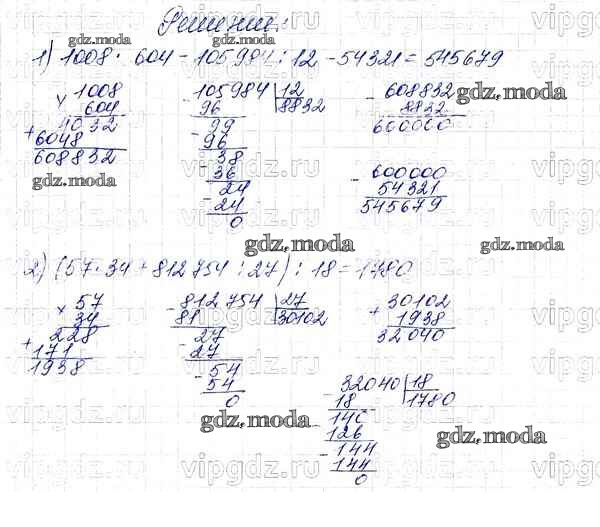 Решение:
1) 1008 · 604 - 105984 : 12 - 54321 = 545679
× 1008
604
+ 4032
6048
608832
- 105984 | 12
96 8832
- 99
96
- 38
36
- 24
24
0
- 608832
8832
600000
- 600000
54321
545679
2) (57 · 34 + 812754 : 27) : 18 = 1780
× 57
34
+ 228
171
1938
- 812754 | 27
81 30102
- 27
27
- 54
54
0
+ 30102
1938
32040
- 32040 | 18
18 1780
- 140
126
- 144
144
0
gdz.moda
gdz.moda
gdz.moda
gdz.moda
gdz.moda
gdz.moda
gdz.moda
gdz.moda
gdz.moda
vipgdz.ru